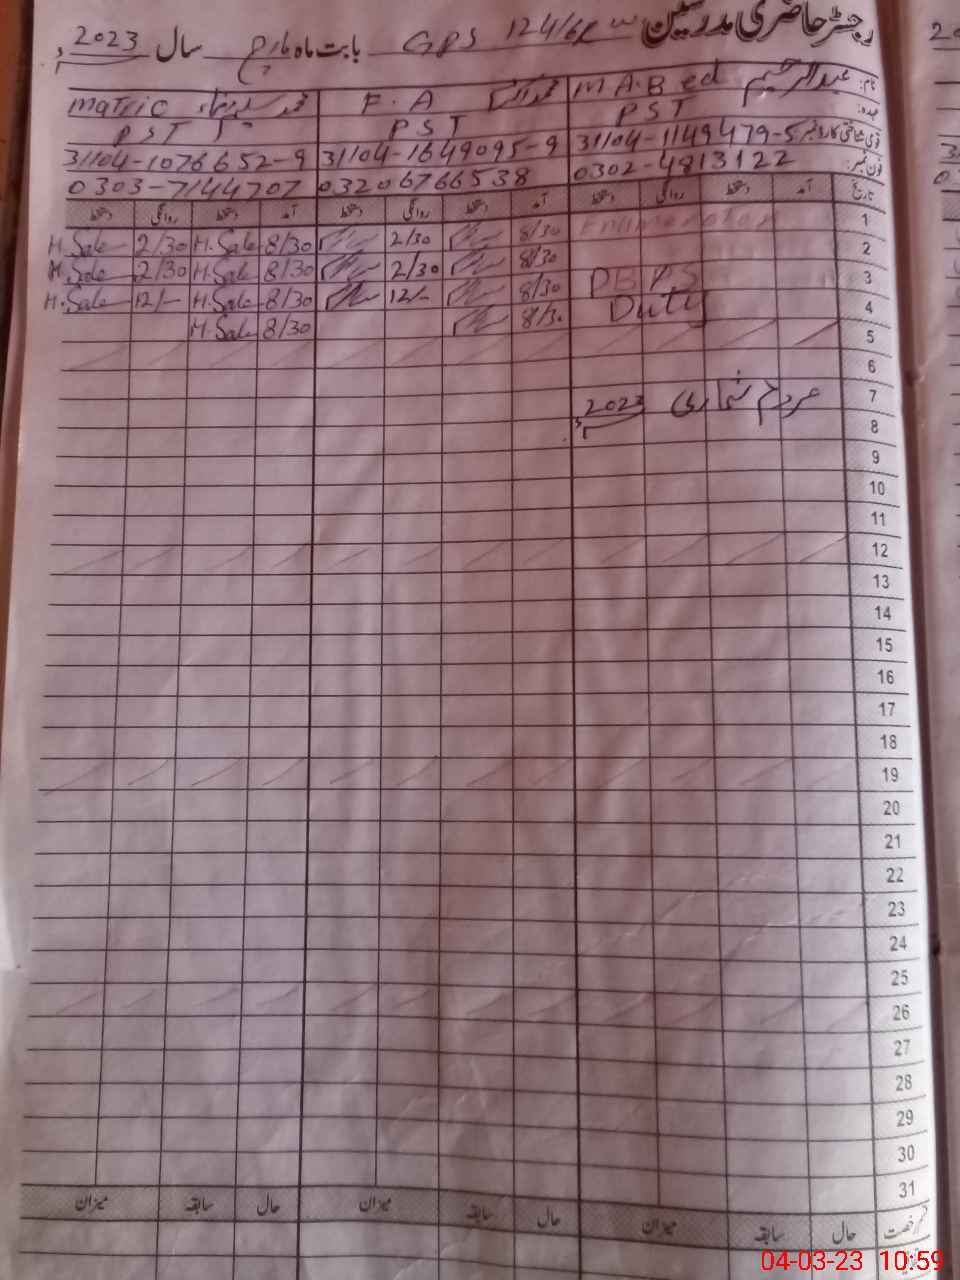 رجسٹر حاضری مدرسین GPS 124/6R بابت ماہ مارچ سال 2023ء
نام: عبدالرحیم M A. B ed F. A محمد Matric
عہدہ: PST PST PST
قومی شناختی کارڈ نمبر 31104-1149479-5 31104-1649095-9 31104-1076652-9
فون نمبر: 0302-4813122 03206766538 0303-7144707
تاریخ آمد دستخط روانگی دستخط آمد دستخط روانگی دستخط آمد دستخط روانگی دستخط
1 Enumerator 8/30 2/30 8/30 H. Sale 2/30 H. Sale
2 8/30 2/30 8/30 H. Sale 2/30 H. Sale
3 DBPS 8/30 12/- 8/30 H. Sale 12/- H. Sale
4 Duty 8/30 8/30 H. Sale
5
6
7 مردم شماری 2023ء
8
9
10
11
12
13
14
15
16
17
18
19
20
21
22
23
24
25
26
27
28
29
30
31
قسم رخصت حال سابقہ میزان حال سابقہ میزان حال سابقہ میزان
04-03-23 10:59